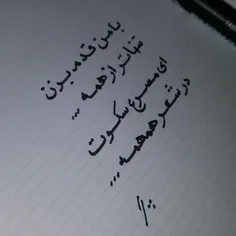 با من قدم بزن
تنهاتر از همه ...
ای مصرع سکوت
در شعر همهمه ...